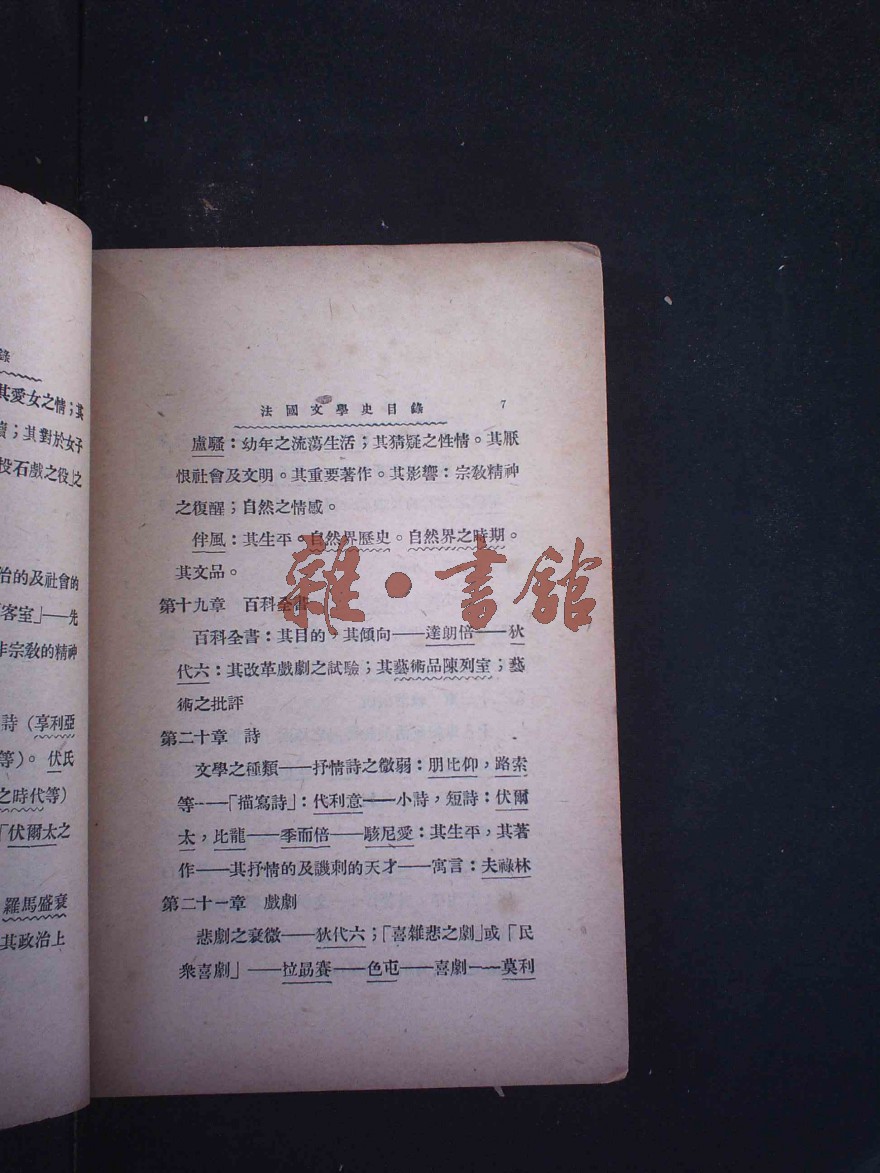 錄
其愛女之情；其
實；其對於女子
投石戲之役」之
治的及社會的
客室」——先
非宗教的精神
詩（享利亞
等）。伏氏
之時代等）
「伏爾太之
羅馬盛衰
其政治上
法國文學史目錄 7
盧騷：幼年之流蕩生活；其猜疑之性情。其厭
恨社會及文明。其重要著作。其影響：宗教精神
之復醒；自然之情感。
伴風：其生平。自然界歷史。自然界之時期。
其文品。
第十九章 百科全書
百科全書：其目的，其傾向——達朗倍——狄
代六：其改革戲劇之試驗；其藝術品陳列室；藝
術之批評
第二十章 詩
文學之種類——抒情詩之微弱：朋比仰，路索
等——「描寫詩」：代利意——小詩，短詩：伏爾
太，比龍——季而倍——駭尼愛：其生平，其著
作——其抒情的及譏刺的天才——寓言：夫祿林
第二十一章 戲劇
悲劇之衰微——狄代六；「喜雜悲之劇」或「民
衆喜劇」——拉勗賽——色屯——喜劇——莫利
雜·書館